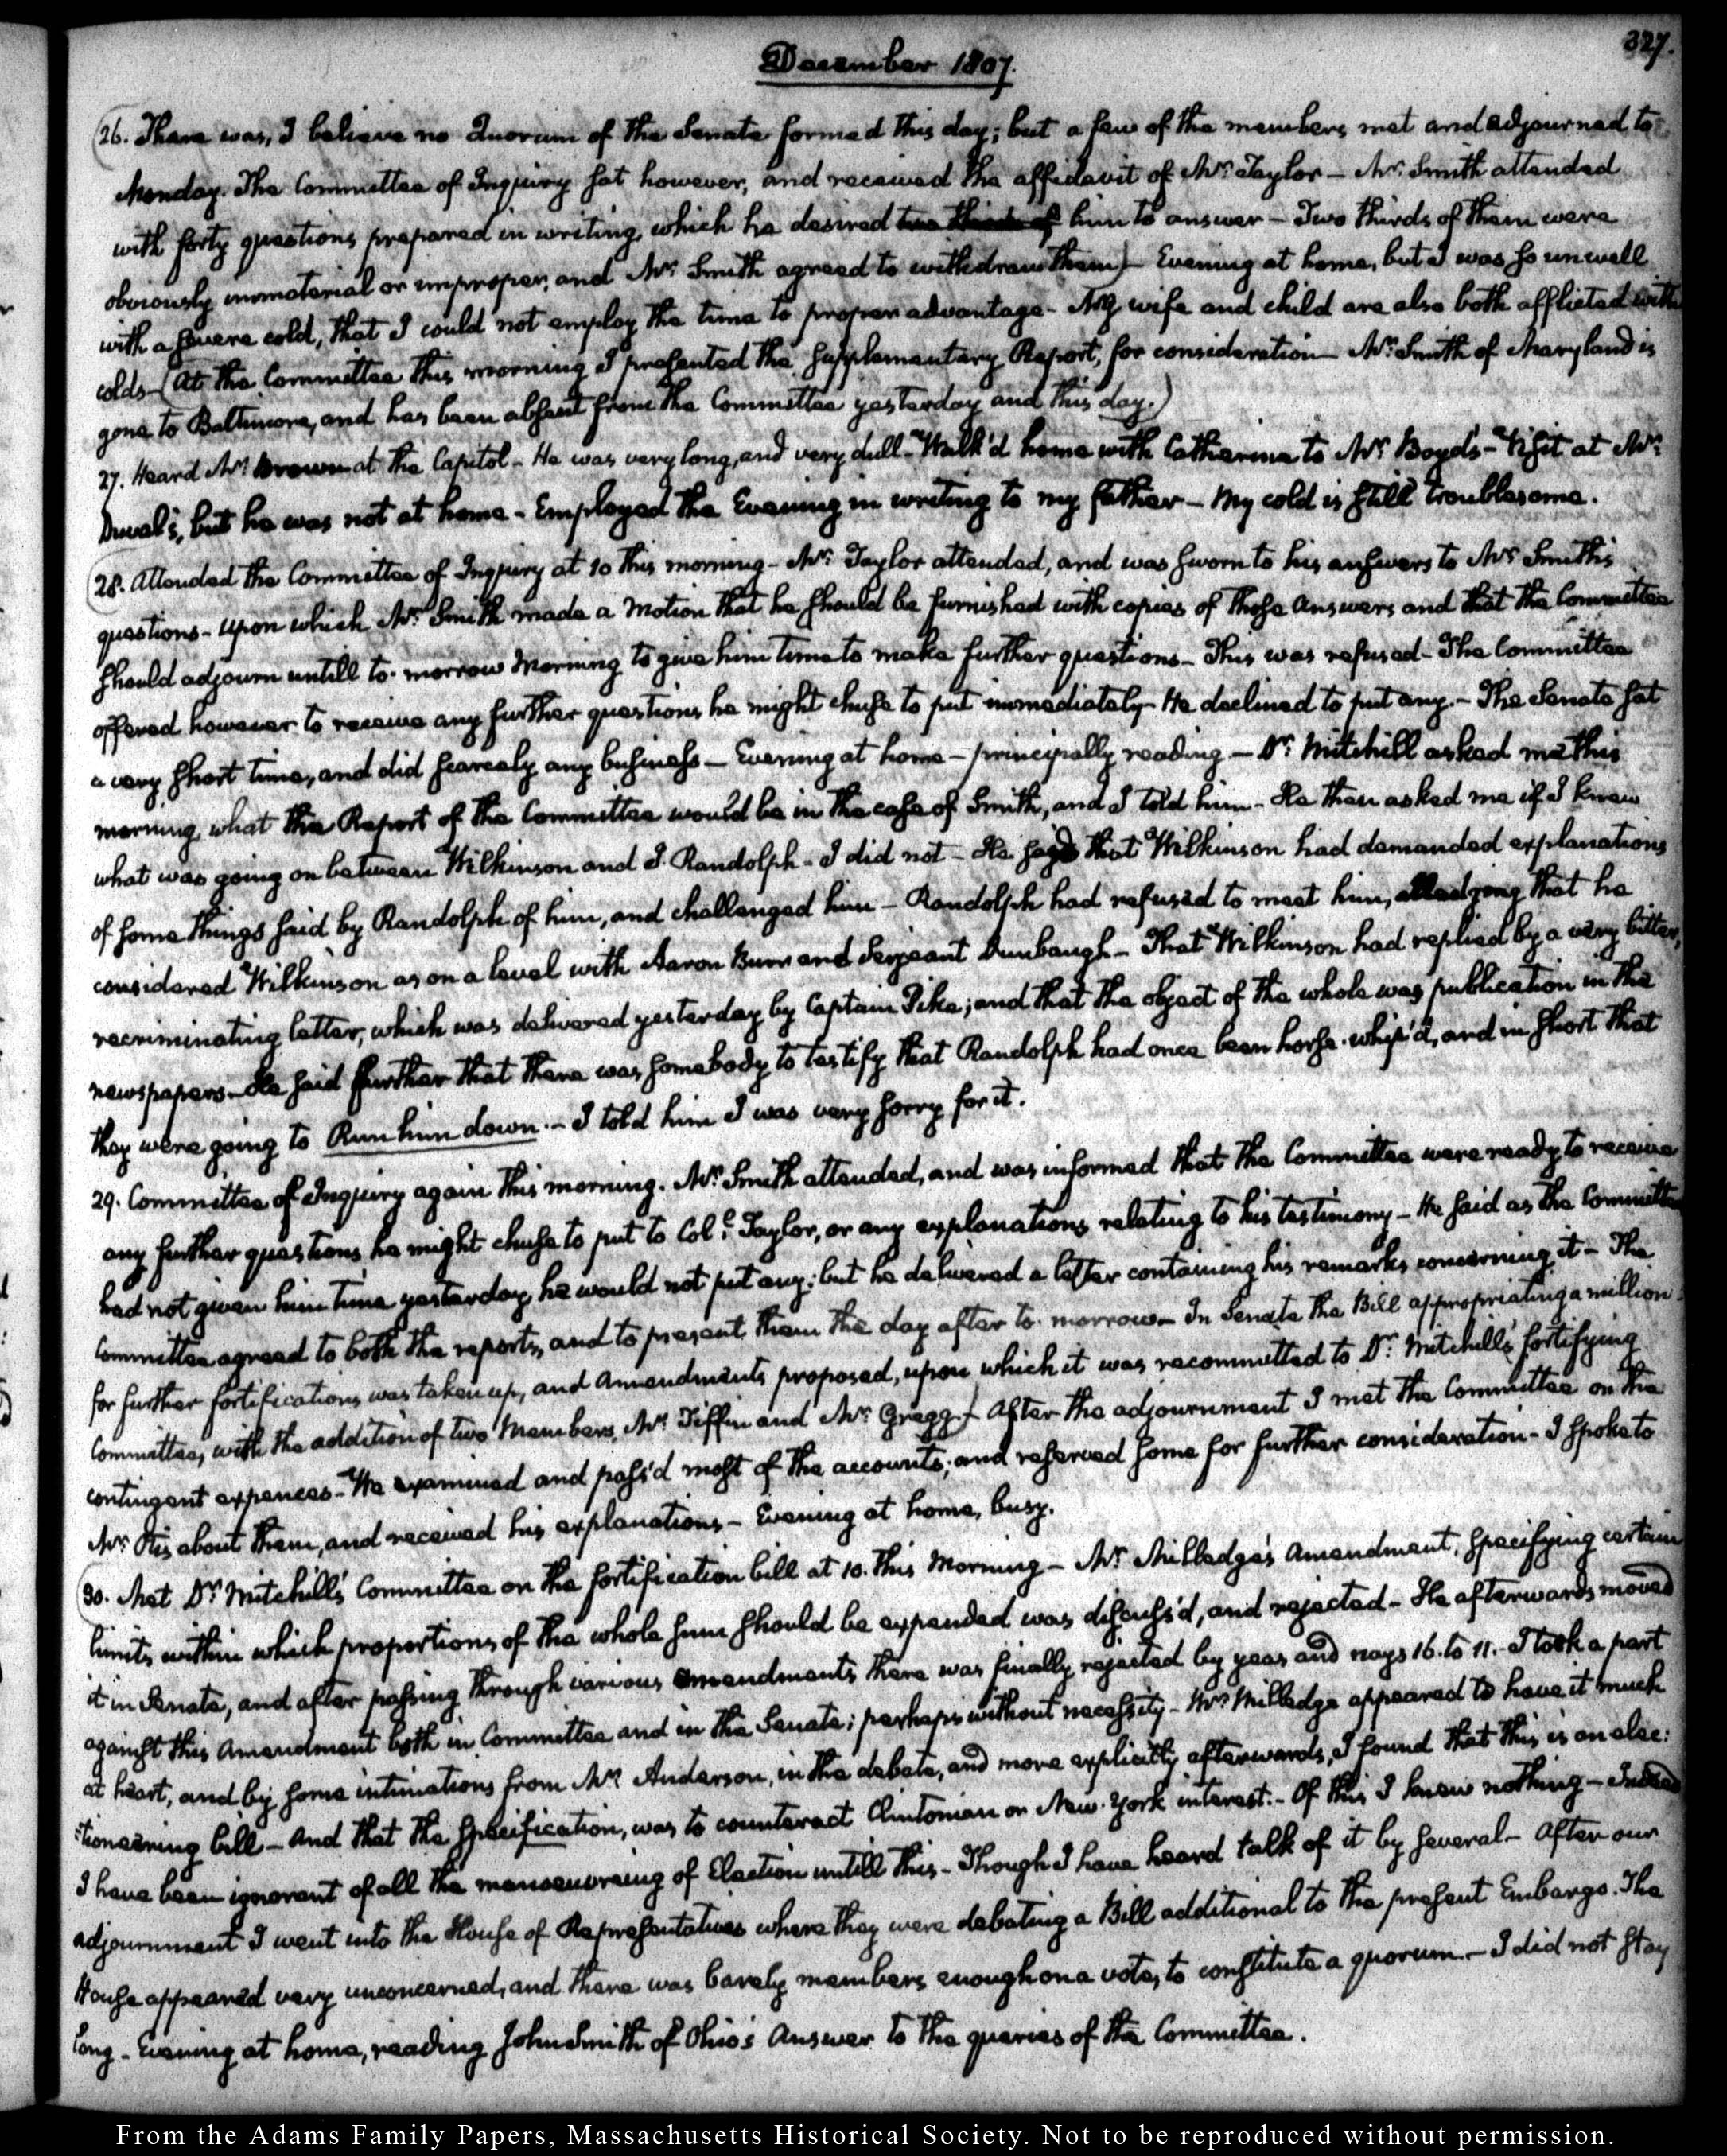 327.
December 1807.
26. There was, I believe no Quorum of the Senate formed this day; but a few of the members met and adjourned to
Monday. The Committee of Inquiry sat however, and received the affidavit of Mr. Taylor — Mr. Smith attended
with forty questions prepared in writing, which he desired two thirds of him to answer — Two thirds of them were
obviously immaterial or improper, and Mr. Smith agreed to withdraw them) — Evening at home, but I was so unwell
with a severe cold, that I could not employ the time to proper advantage - My wife and child are also both afflicted with
colds — (At the Committee this morning I presented the supplementary Report, for consideration — Mr. Smith of Maryland is
gone to Baltimore, and has been absent from the Committee yesterday and this day.)
27. Heard Mr. Brown at the Capitol — He was very long, and very dull — Walk'd home with Catharine to Mr. Boyd's — Visit at Mr.
Duval's, but he was not at home — Employed the Evening in writing to my father — My cold is still troublesome.
28. Attended the Committee of Inquiry at 10 this morning — Mr. Taylor attended, and was sworn to his answers to Mr. Smith's
questions - upon which Mr. Smith made a Motion that he should be furnished with copies of those Answers and that the Committee
should adjourn untill to-morrow Morning to give him time to make further questions — This was refused — The Committee
offered however to receive any further questions he might chuse to put immediately — He declined to put any. — The Senate sat
a very short time, and did scarcely any business — Evening at home — principally reading — Dr. Mitchill asked me this
morning what the Report of the Committee would be in the case of Smith, and I told him — He then asked me if I knew
what was going on between Wilkinson and J. Randolph — I did not — He says that Wilkinson had demanded explanations
of some things said by Randolph of him, and challenged him — Randolph had refused to meet him, alledging that he
considered Wilkinson as on a level with Aaron Burr and Serjeant Dunbaugh — That Wilkinson had replied by a very bitter,
recriminating letter, which was delivered yesterday by Captain Pike; and that the object of the whole was publication in the
newspapers — He said further that there was somebody to testify that Randolph had once been horse-whip'd, and in short that
they were going to Run him down. — I told him I was very sorry for it.
29. Committee of Inquiry again this morning. Mr. Smith attended, and was informed that the Committee were ready to receive
any further questions he might chuse to put to Coll. Taylor, or any explanations relating to his testimony — He said as the Committee
had not given him time yesterday, he would not put any; but he delivered a letter containing his remarks concerning it — The
Committee agreed to both the reports, and to present them the day after to-morrow — In Senate the Bill appropriating a million
for further fortifications was taken up, and Amendments proposed, upon which it was recommitted to Dr. Mitchill's fortifying
Committee, with the addition of two Members, Mr. Tiffin and Mr. Gregg) — After the adjournment I met the Committee on the
contingent expences — We examined and pass'd most of the accounts; and reserved some for further consideration — I spoke to
Mr. Otis about them, and received his explanations — Evening at home, busy.
30. Met Dr. Mitchill's Committee on the fortification bill at 10. this Morning — Mr. Milledge's Amendment, specifying certain
limits within which proportions of the whole sum should be expended was discuss'd, and rejected — He afterwards moved
it in Senate, and after passing through various amendments there was finally rejected by yeas and nays 16. to 11. — I took a part
against this Amendment both in Committee and in the Senate; perhaps without necessity — Mr. Milledge appeared to have it much
at heart, and by some intimations from Mr. Anderson, in the debate, and more explicitly afterwards, I found that this is an elec:
:tioneering bill — And that the specification, was to counteract Clintonian or New-York interest. — Of this I knew nothing — Indeed
I have been ignorant of all the manoeuvreing of Election untill this — Though I have heard talk of it by several — After our
adjournment I went into the House of Representatives where they were debating a Bill additional to the present Embargo. The
House appeared very unconcerned, and there was barely members enough on a vote, to constitute a quorum — I did not stay
long — Evening at home, reading John Smith of Ohio's Answer to the queries of the Committee.
From the Adams Family Papers, Massachusetts Historical Society. Not to be reproduced without permission.